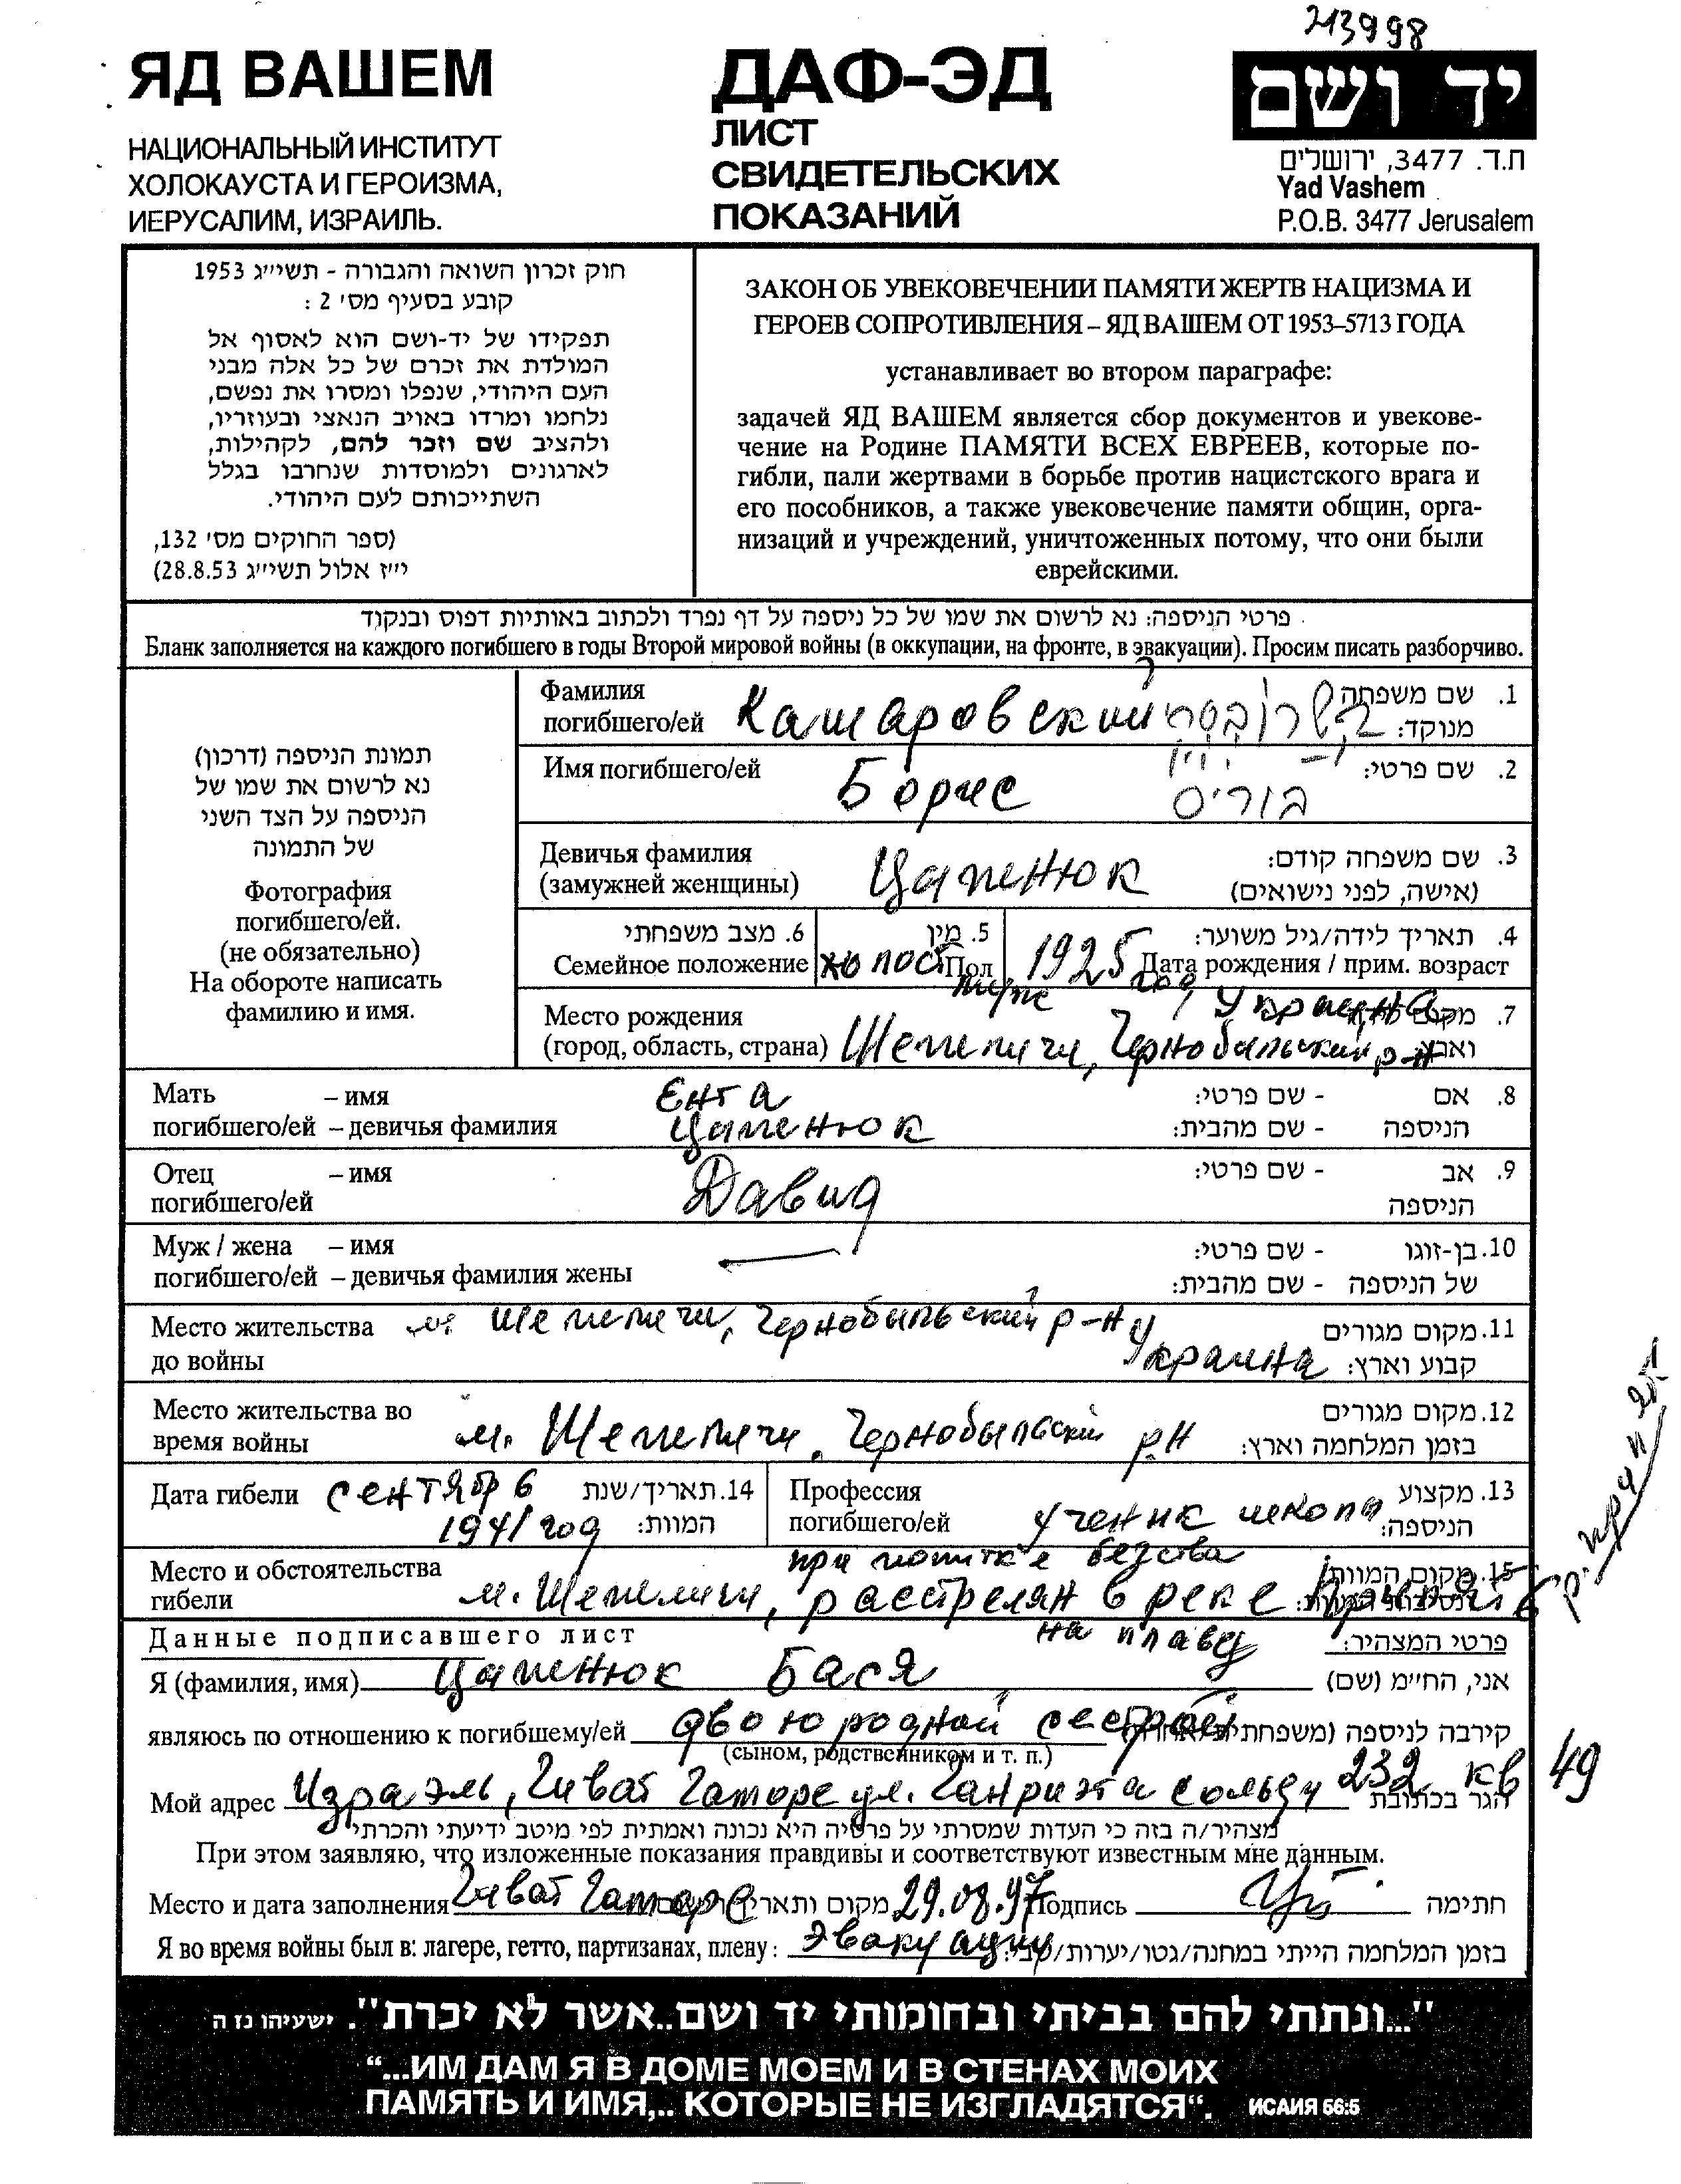 213998
ЯД ВАШЕМ
НАЦИОНАЛЬНЫЙ ИНСТИТУТ
ХОЛОКАУСТА И ГЕРОИЗМА,
ИЕРУСАЛИМ, ИЗРАИЛЬ.
ДАФ-ЭД
ЛИСТ
СВИДЕТЕЛЬСКИХ
ПОКАЗАНИЙ
יד ושם
ת.ד. 3477, ירושלים
Yad Vashem
P.O.B. 3477 Jerusalem
חוק זכרון השואה והגבורה - תשי״ג 1953
קובע בסעיף מס׳ 2 :
תפקידו של יד-ושם הוא לאסוף אל
המולדת את זכרם של כל אלה מבני
העם היהודי, שנפלו ומסרו את נפשם,
נלחמו ומרדו באויב הנאצי ובעוזריו,
ולהציב שם וזכר להם, לקהילות,
לארגונים ולמוסדות שנחרבו בגלל
השתייכותם לעם היהודי.
(ספר החוקים מס׳ 132,
י״ז אלול תשי״ג 28.8.53)
ЗАКОН ОБ УВЕКОВЕЧЕНИИ ПАМЯТИ ЖЕРТВ НАЦИЗМА И
ГЕРОЕВ СОПРОТИВЛЕНИЯ – ЯД ВАШЕМ ОТ 1953–5713 ГОДА
устанавливает во втором параграфе:
задачей ЯД ВАШЕМ является сбор документов и увекове-
чение на Родине ПАМЯТИ ВСЕХ ЕВРЕЕВ, которые по-
гибли, пали жертвами в борьбе против нацистского врага и
его пособников, а также увековечение памяти общин, орга-
низаций и учреждений, уничтоженных потому, что они были
еврейскими.
פרטי הניספה: נא לרשום את שמו של כל ניספה על דף נפרד ולכתוב באותיות דפוס ובנקוד
Бланк заполняется на каждого погибшего в годы Второй мировой войны (в оккупации, на фронте, в эвакуации). Просим писать разборчиво.
תמונת הניספה (דרכון)
נא לרשום את שמו של
הניספה על הצד השני
של התמונה
Фотография
погибшего/ей.
(не обязательно)
На обороте написать
фамилию и имя.
Фамилия
погибшего/ей Кашаровский
1. שם משפחה
מנוקד:
Имя погибшего/ей Борис בוריס 2. שם פרטי:
Девичья фамилия
(замужней женщины) Цапенюк
3. שם משפחה קודם:
(אישה, לפני נישואים)
6. מצב משפחתי
Семейное положение холост
5. מין
Пол муж
4. תאריך לידה/גיל משוער:
1925 год Дата рождения / прим. возраст
Место рождения Украина 7. מקום
(город, область, страна) Шепеличи, Чернобыльский р-н
Мать – имя Ента 8. אם - שם פרטי:
погибшего/ей – девичья фамилия Цапенюк הניספה - שם מהבית:
Отец – имя Давид 9. אב - שם פרטי:
погибшего/ей הניספה
Муж / жена – имя 10. בן-זוגו - שם פרטי:
погибшего/ей – девичья фамилия жены של הניספה - שם מהבית:
Место жительства м. Шепеличи, Чернобыльский р-н 11. מקום מגורים
до войны Украина קבוע וארץ:
Место жительства во 12. מקום מגורים
время войны м. Шепеличи, Чернобыльский р-н בזמן המלחמה וארץ:
Дата гибели сентябрь 14. תאריך/שנת
1941 год המוות:
Профессия 13. מקצוע
погибшего/ей ученик школы הניספה:
Место и обстоятельства при попытке бегства 15. מקום המוות
гибели м. Шепеличи, расстрелян в реке Припять
р. Припять
на плаву
Данные подписавшего лист פרטי המצהיר:
Я (фамилия, имя) Цапенюк Бася אני, הח״מ (שם)
являюсь по отношению к погибшему/ей двоюродной сестрой קירבה לניספה
(сыном, родственником и т. п.)
Мой адрес Израэль, Гиват Гаморе ул. Ганриэта Сольду 232 кв 49 הגר בכתובת
מצהיר/ה בזה כי העדות שמסרתי על פרטיה היא נכונה ואמתית לפי מיטב ידיעתי והכרתי
При этом заявляю, что изложенные показания правдивы и соответствуют известным мне данным.
Место и дата заполнения Гиват Гаморе מקום ותאריך 29.08.97 Подпись חתימה
Я во время войны был в: лагере, гетто, партизанах, плену: Эвакуации בזמן המלחמה הייתי במחנה/גטו/יערות/
"...ונתתי להם בביתי ובחומותי יד ושם..אשר לא יכרת". ישעיהו נז ה
“...ИМ ДАМ Я В ДОМЕ МОЕМ И В СТЕНАХ МОИХ
ПАМЯТЬ И ИМЯ,.. КОТОРЫЕ НЕ ИЗГЛАДЯТСЯ“. ИСАИЯ 56:5